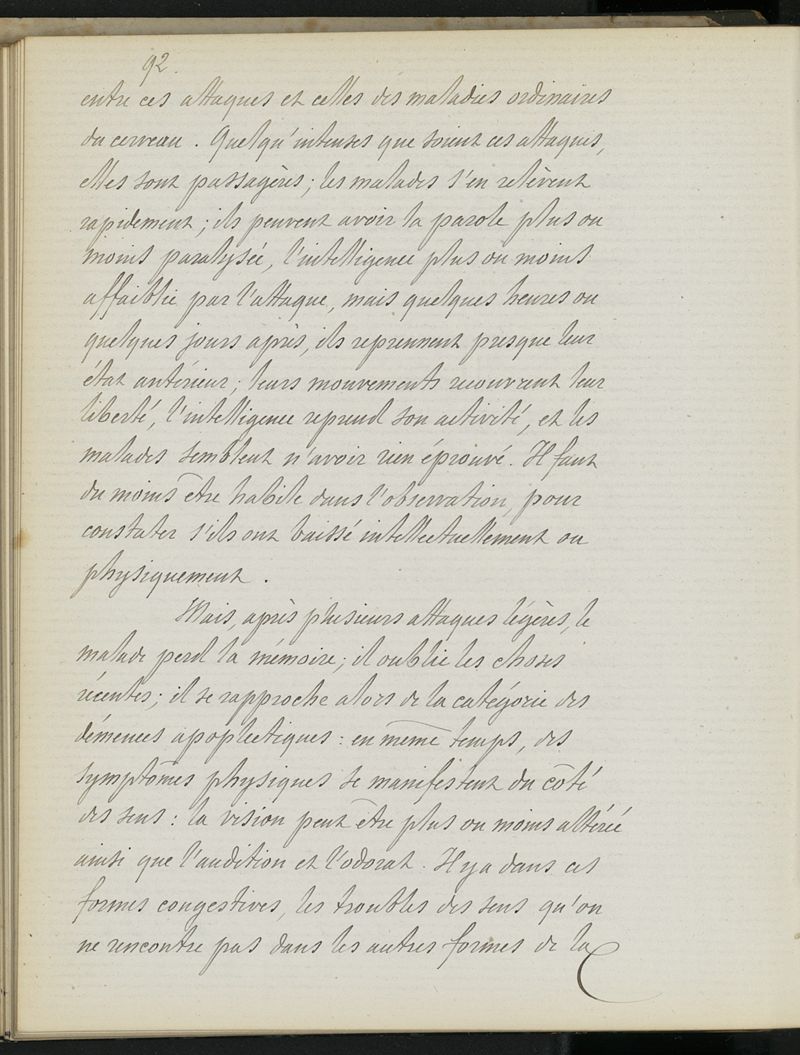 92.
entre ces attaques et celles des maladies ordinaires
du cerveau. Quelqu'intenses que soient ces attaques,
elles sont passagères; les malades s'en relèvent
rapidement; ils peuvent avoir la parole plus ou
moins paralysée, l'intelligence plus ou moins
affaiblie par l'attaque, mais quelques heures ou
quelques jours après, ils reprennent presque leur
état antérieur; leurs mouvements recouvrent leur
liberté, l'intelligence reprend son activité, et les
malades semblent n'avoir rien éprouvé. Il faut
du moins être habile dans l'observation, pour
constater s'ils ont baissé intellectuellement ou
physiquement.
Mais, après plusieurs attaques légères, le
malade perd la mémoire; il oublie les choses
récentes; il se rapproche alors de la catégorie des
démences apoplectiques: en même temps, des
symptômes physiques se manifestent du côté
des sens: la vision peut être plus ou moins altérée
ainsi que l'audition et l'odorat. Il y a dans ces
formes congestives, les troubles des sens qu'on
ne rencontre pas dans les autres formes de la